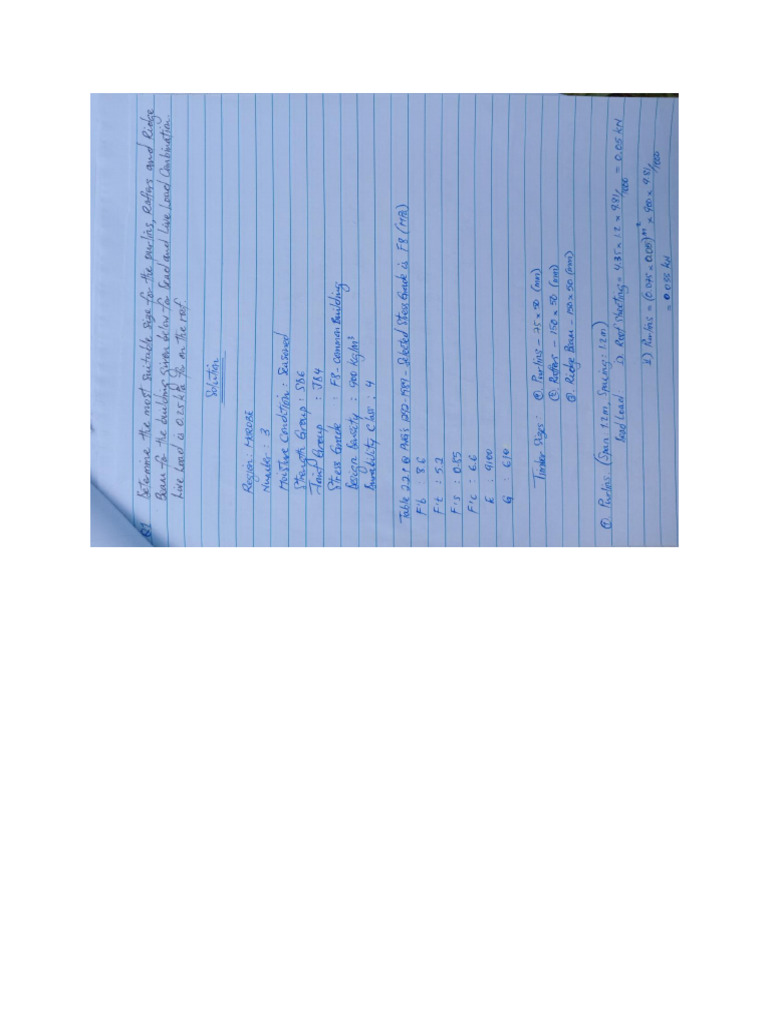 Q1 Determine the most suitable size for the purlins, Rafters and Ridge
Beam for the building given below for Dead and Live Load Combination.
Live Load is 0.25 kPa for on the roof.
Solution
Region: MOROBE
Number: 3
Moisture Condition: Seasoned
Strength Group: SD6
Joint Group: JD4
Stress Grade: F8 - Common Building
Design Density: 900 kg/m³
Durability Class: 4
Table 2.2.1 @ 1972-1989 - Selected Stress Grade is F8 (MPa)
F'b : 8.6
F't : 5.2
F's : 0.85
F'c : 6.6
E : 9100
G : 610
Timber Sizes: ① Purlins - 75 x 50 (mm)
② Rafters - 150 x 50 (mm)
③ Ridge Beam - 150 x 50 (mm)
① Purlins (Span 1.2m, Spacing: 1.2m)
Dead Load i) Roof Sheeting = 4.35 x 1.2 x 9.81/1000 = 0.05 kN
ii) Purlins = (0.075 x 0.05)m² x 900 x 9.81/1000
= 0.055 kN